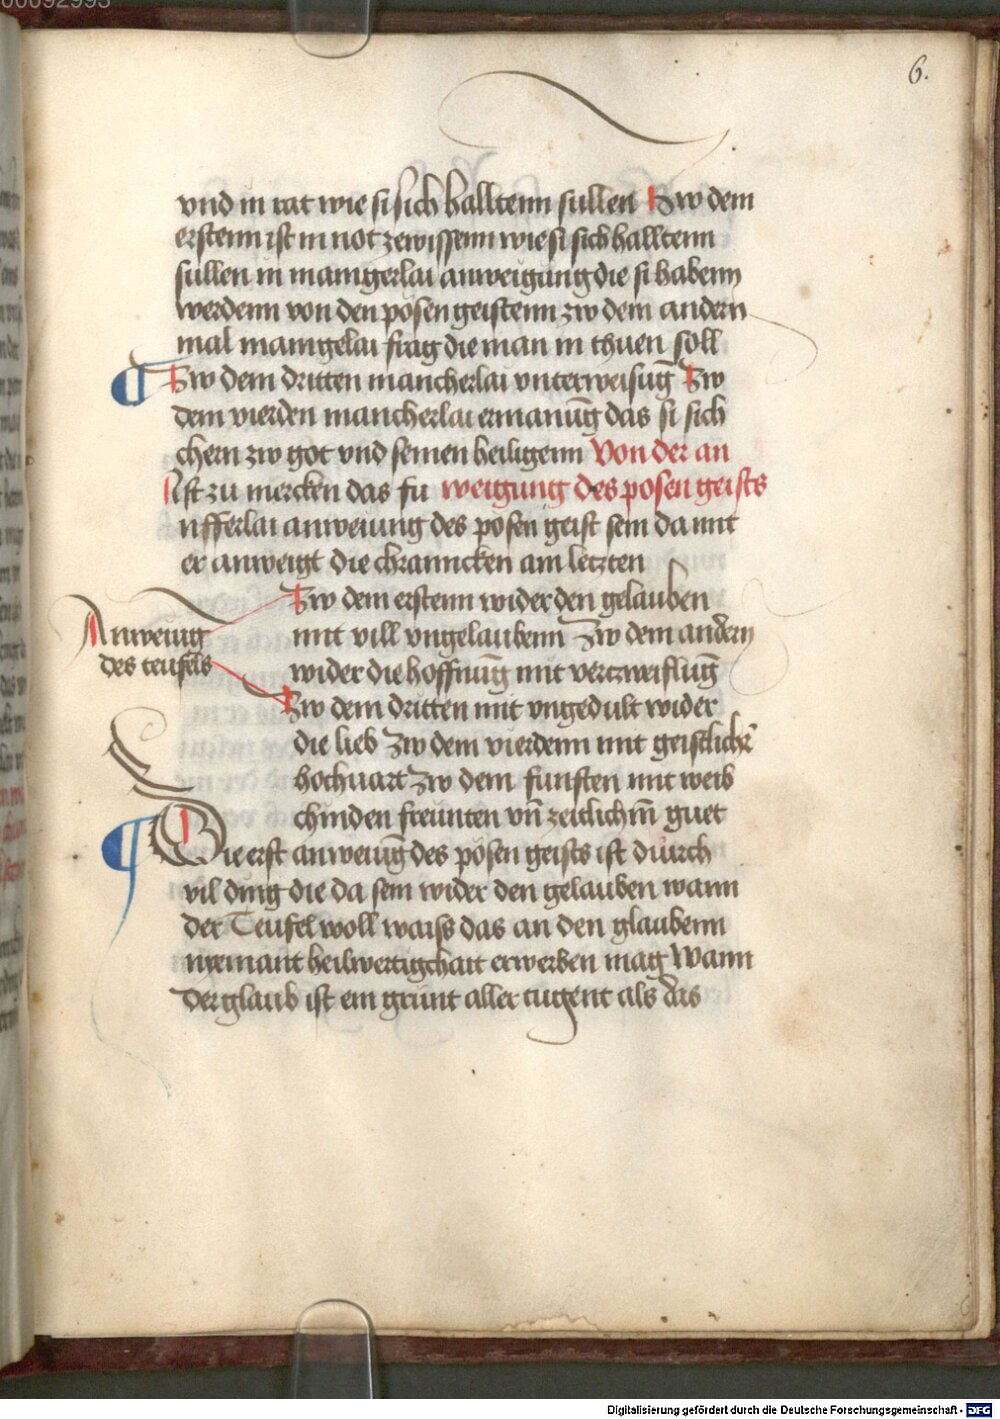 00092993
6.
vnd in rat wie si sich halltenn sullen Zw dem
erstenn ist in not zewissenn wie si sich halltenn
sullen in manigerlai anweigung die si habenn
werdenn von den pösen geistenn zw dem andern
mal manigelai frag die man in thuen soll
Zw dem dritten mancherlai vnterweisūg Zw
dem vierden mancherlai ermanūg das si sich
chern zw got vnd seinen heiligenn Von der an
Ist zu mercken das fu weigung des posen geists
nfferlai anweiung des pösen geist sein da mit
er anweigt die chranncken am letzten
Zw dem erstenn wider den gelauben
Anweiūg
mit vill vngelaubenn Zw dem andern
des teufels
wider die hoffnūg mit verzweiflūg
Zw dem dritten mit vngedult wider
die lieb Zw dem vierdenn mit geistlicher
hochuart Zw dem funften mit weib
chinden freunten vn̄ zeitlichm̄ guet
Die erst anweiūg des pösen geists ist durch
vil ding die da sein wider den gelauben wann
der Teufel woll waiss das an den glaubenn
nyemant heilwertigchait erwerben mag Wann
der glaub ist ein grunt aller tugent als das
Digitalisierung gefördert durch die Deutsche Forschungsgemeinschaft - DFG